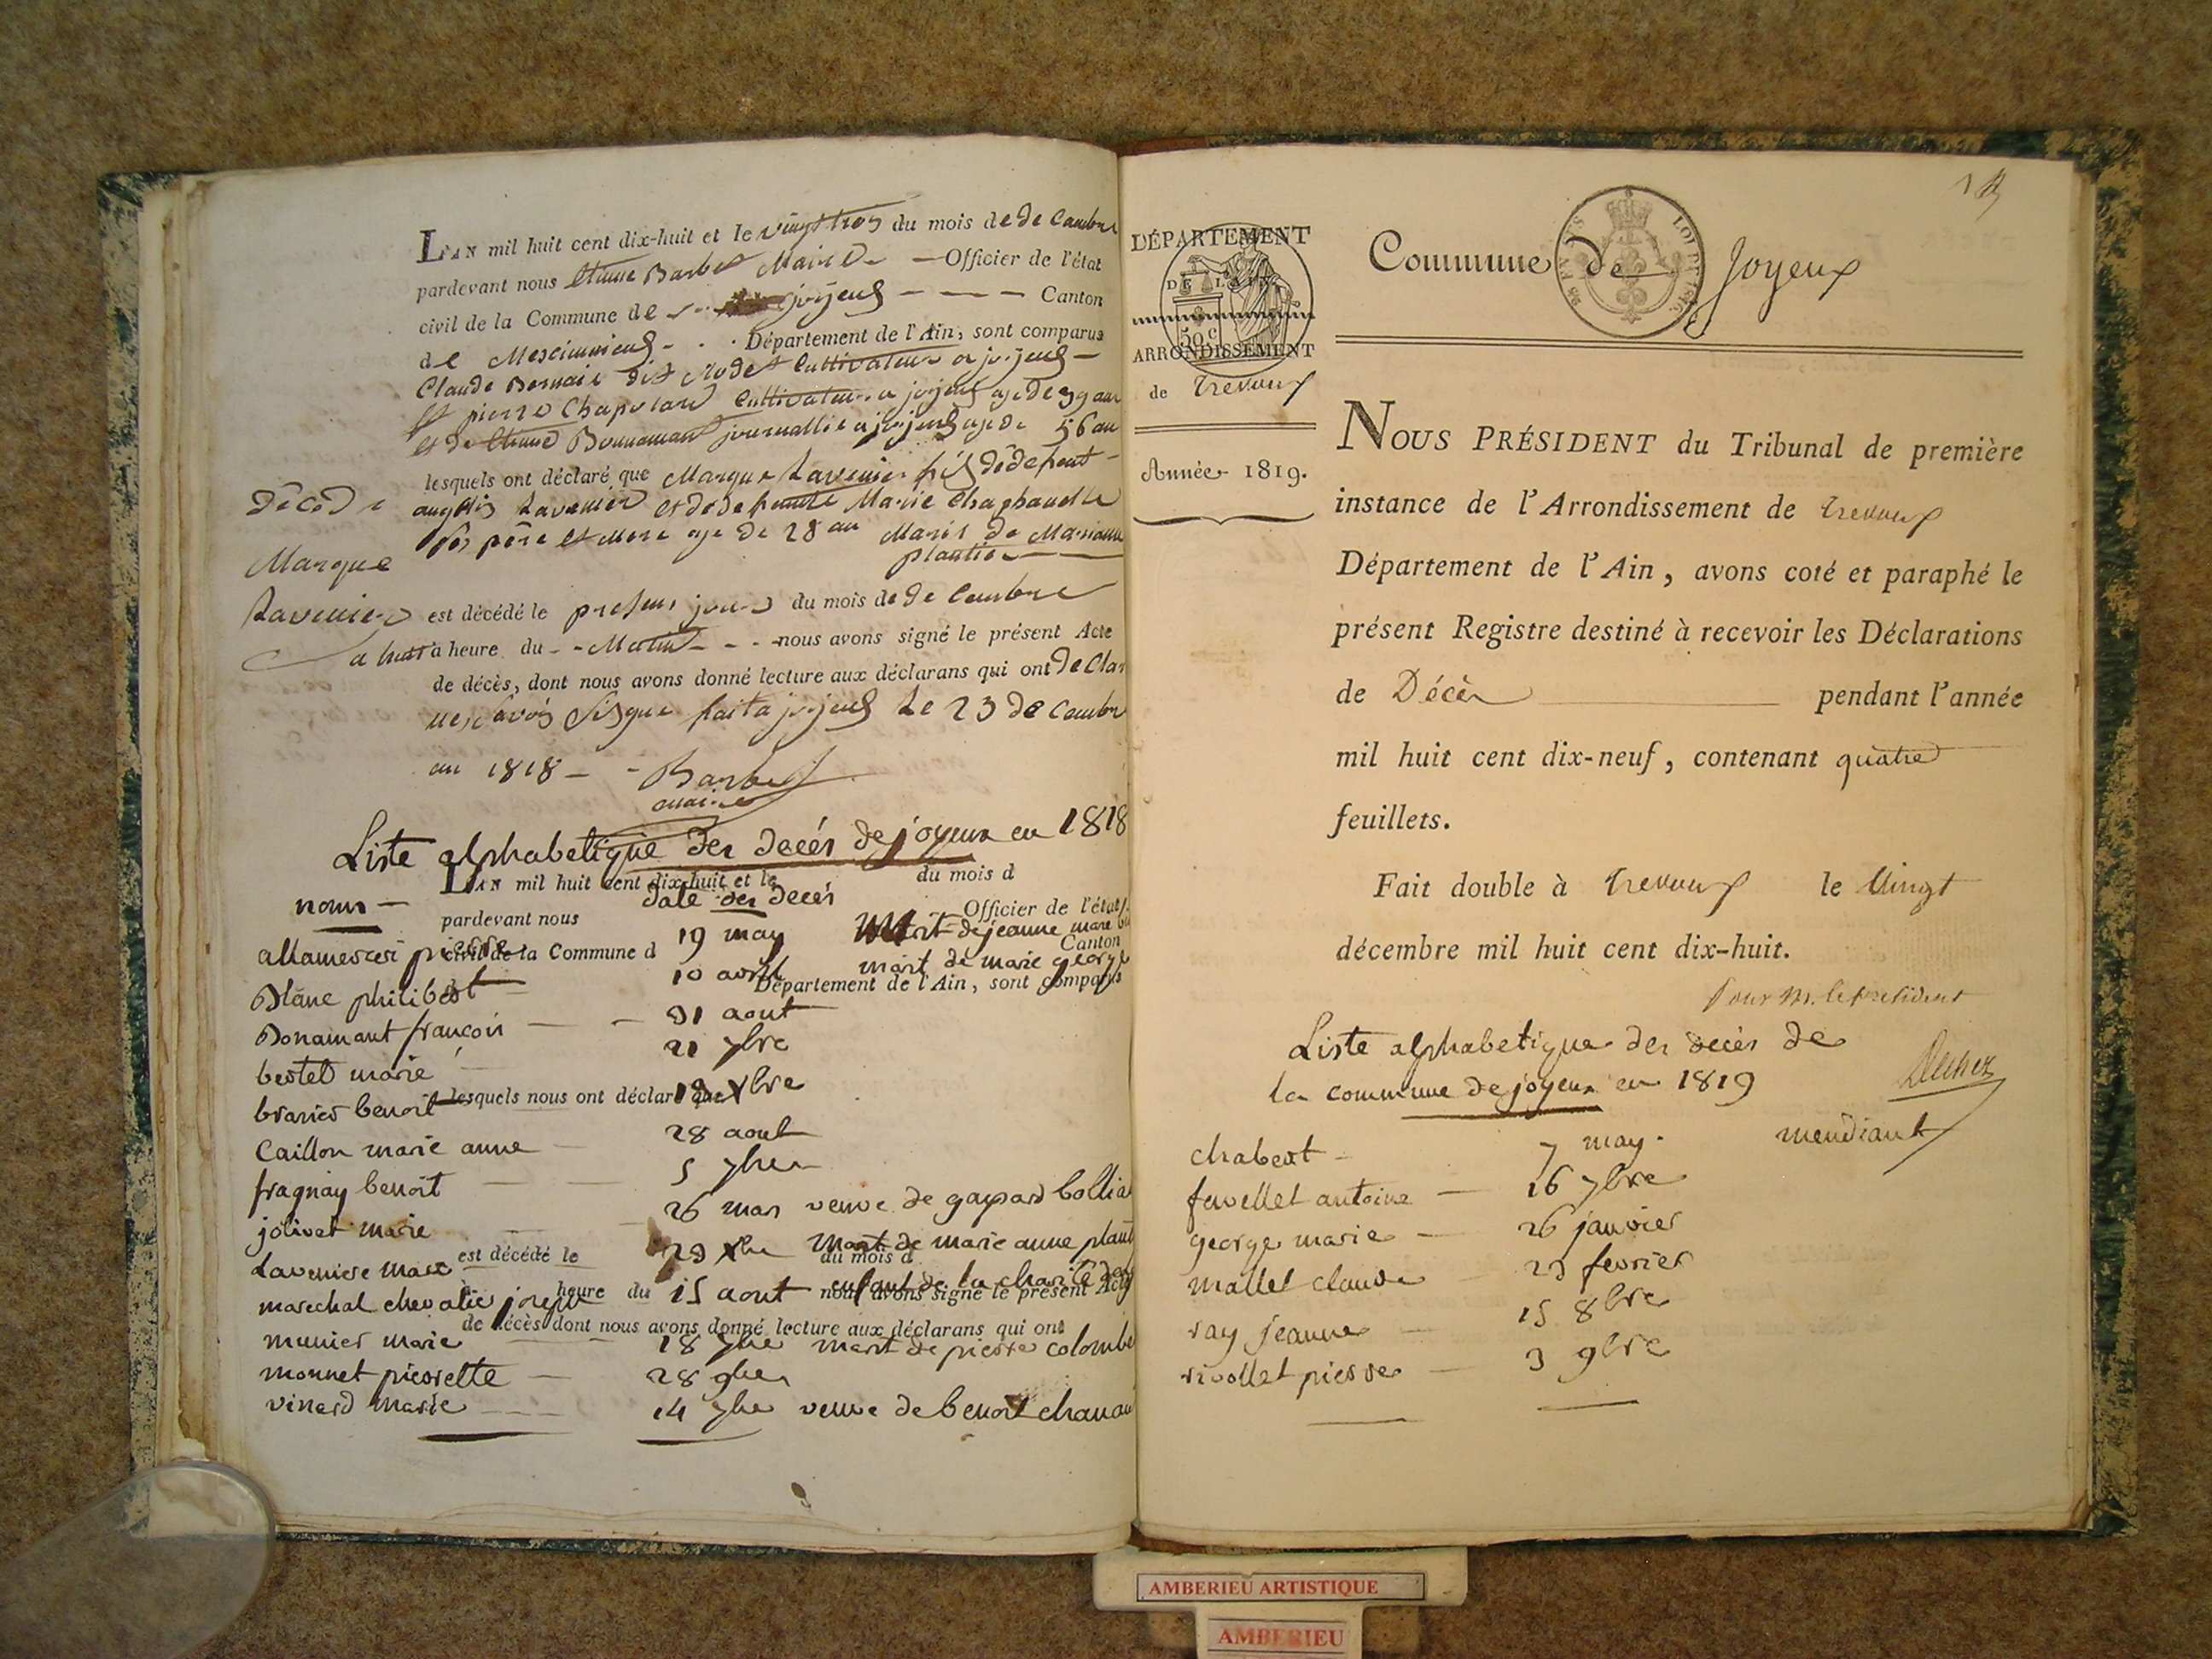 LAN mil huit cent dix-huit et le vingt trois du mois de de Cambre
pardevant nous Etienne Barbet Maire Officier de l'état
civil de la Commune de joyeux Canton
de Département de l'Ain, sont comparus
Claude dit Cultivateur a joyeux
et pierre Cultivateur a joyeux age de 39 ans
et de Etienne Bonnamant journallie a joyeux age de 56 an
lesquels ont déclaré, que Marque Lavenier fils de defeunt
Lavenier et de defeunte Marie
père et Mere age de 28 an Marit de Marianne
plantier
décédé
Marque
Lavenier
est décédé le presens jour du mois de de Cembre
a huit à heure du Matin nous avons signé le présent Acte
de décès, dont nous avons donné lecture aux déclarans qui ont de Clar
fait a joyeux Le 23 de Cembre
an 1818 Barbet
maire
Liste alphabetique des decés de joyeux en 1818
LAN mil huit cent dix-huit et le du mois d
noms date des decés
pardevant nous Officier de l'état
pierre 19 may Marit de jeanne marie
civil de la Commune d Canton
philibert 10 avril marit de marie george
Département de l'Ain, sont comparus
Bonamant francois 31 aout
bertet marie 21 7bre
lesquels nous ont déclaré que
branier benoit 19 Xbre
Caillon marie anne 28 aout
fragnay benoit 5 7bre
jolivet marie 26 mars veuve de gaspard
est décédé le du mois d
Laveniere marc 23 Xbre Marit de marie anne plant
heure du nous avons signé le présent Acte
marechal chevalier joseph 15 aout enfant de la charité de
de décès dont nous avons donné lecture aux déclarans qui ont
munier marie 18 7bre marit de pierre colombe
monnet pierrette 28 9bre
vinard marie 14 7bre veuve de benoit
DÉPARTEMENT
DE L'AIN
50 c
ARRONDISSEMENT
de Trevoux
Année 1819.
Commune de Joyeux
NOUS PRÉSIDENT du Tribunal de première
instance de l'Arrondissement de Trevoux
Département de l'Ain, avons coté et paraphé le
présent Registre destiné à recevoir les Déclarations
de Décès pendant l'année
mil huit cent dix-neuf, contenant quatre
feuillets.
Fait double à Trevoux le Vingt
décembre mil huit cent dix-huit.
Pour M. le président
Liste alphabetique des decés de
la commune de joyeux en 1819
chabert 7 may. mendiant
favellet antoine 16 7bre
george marie 26 janvier
mallet claude 23 fevrier
ray jeanne 15 8bre
rivollet pierre 3 9bre
AMBERIEU ARTISTIQUE
AMBERIEU